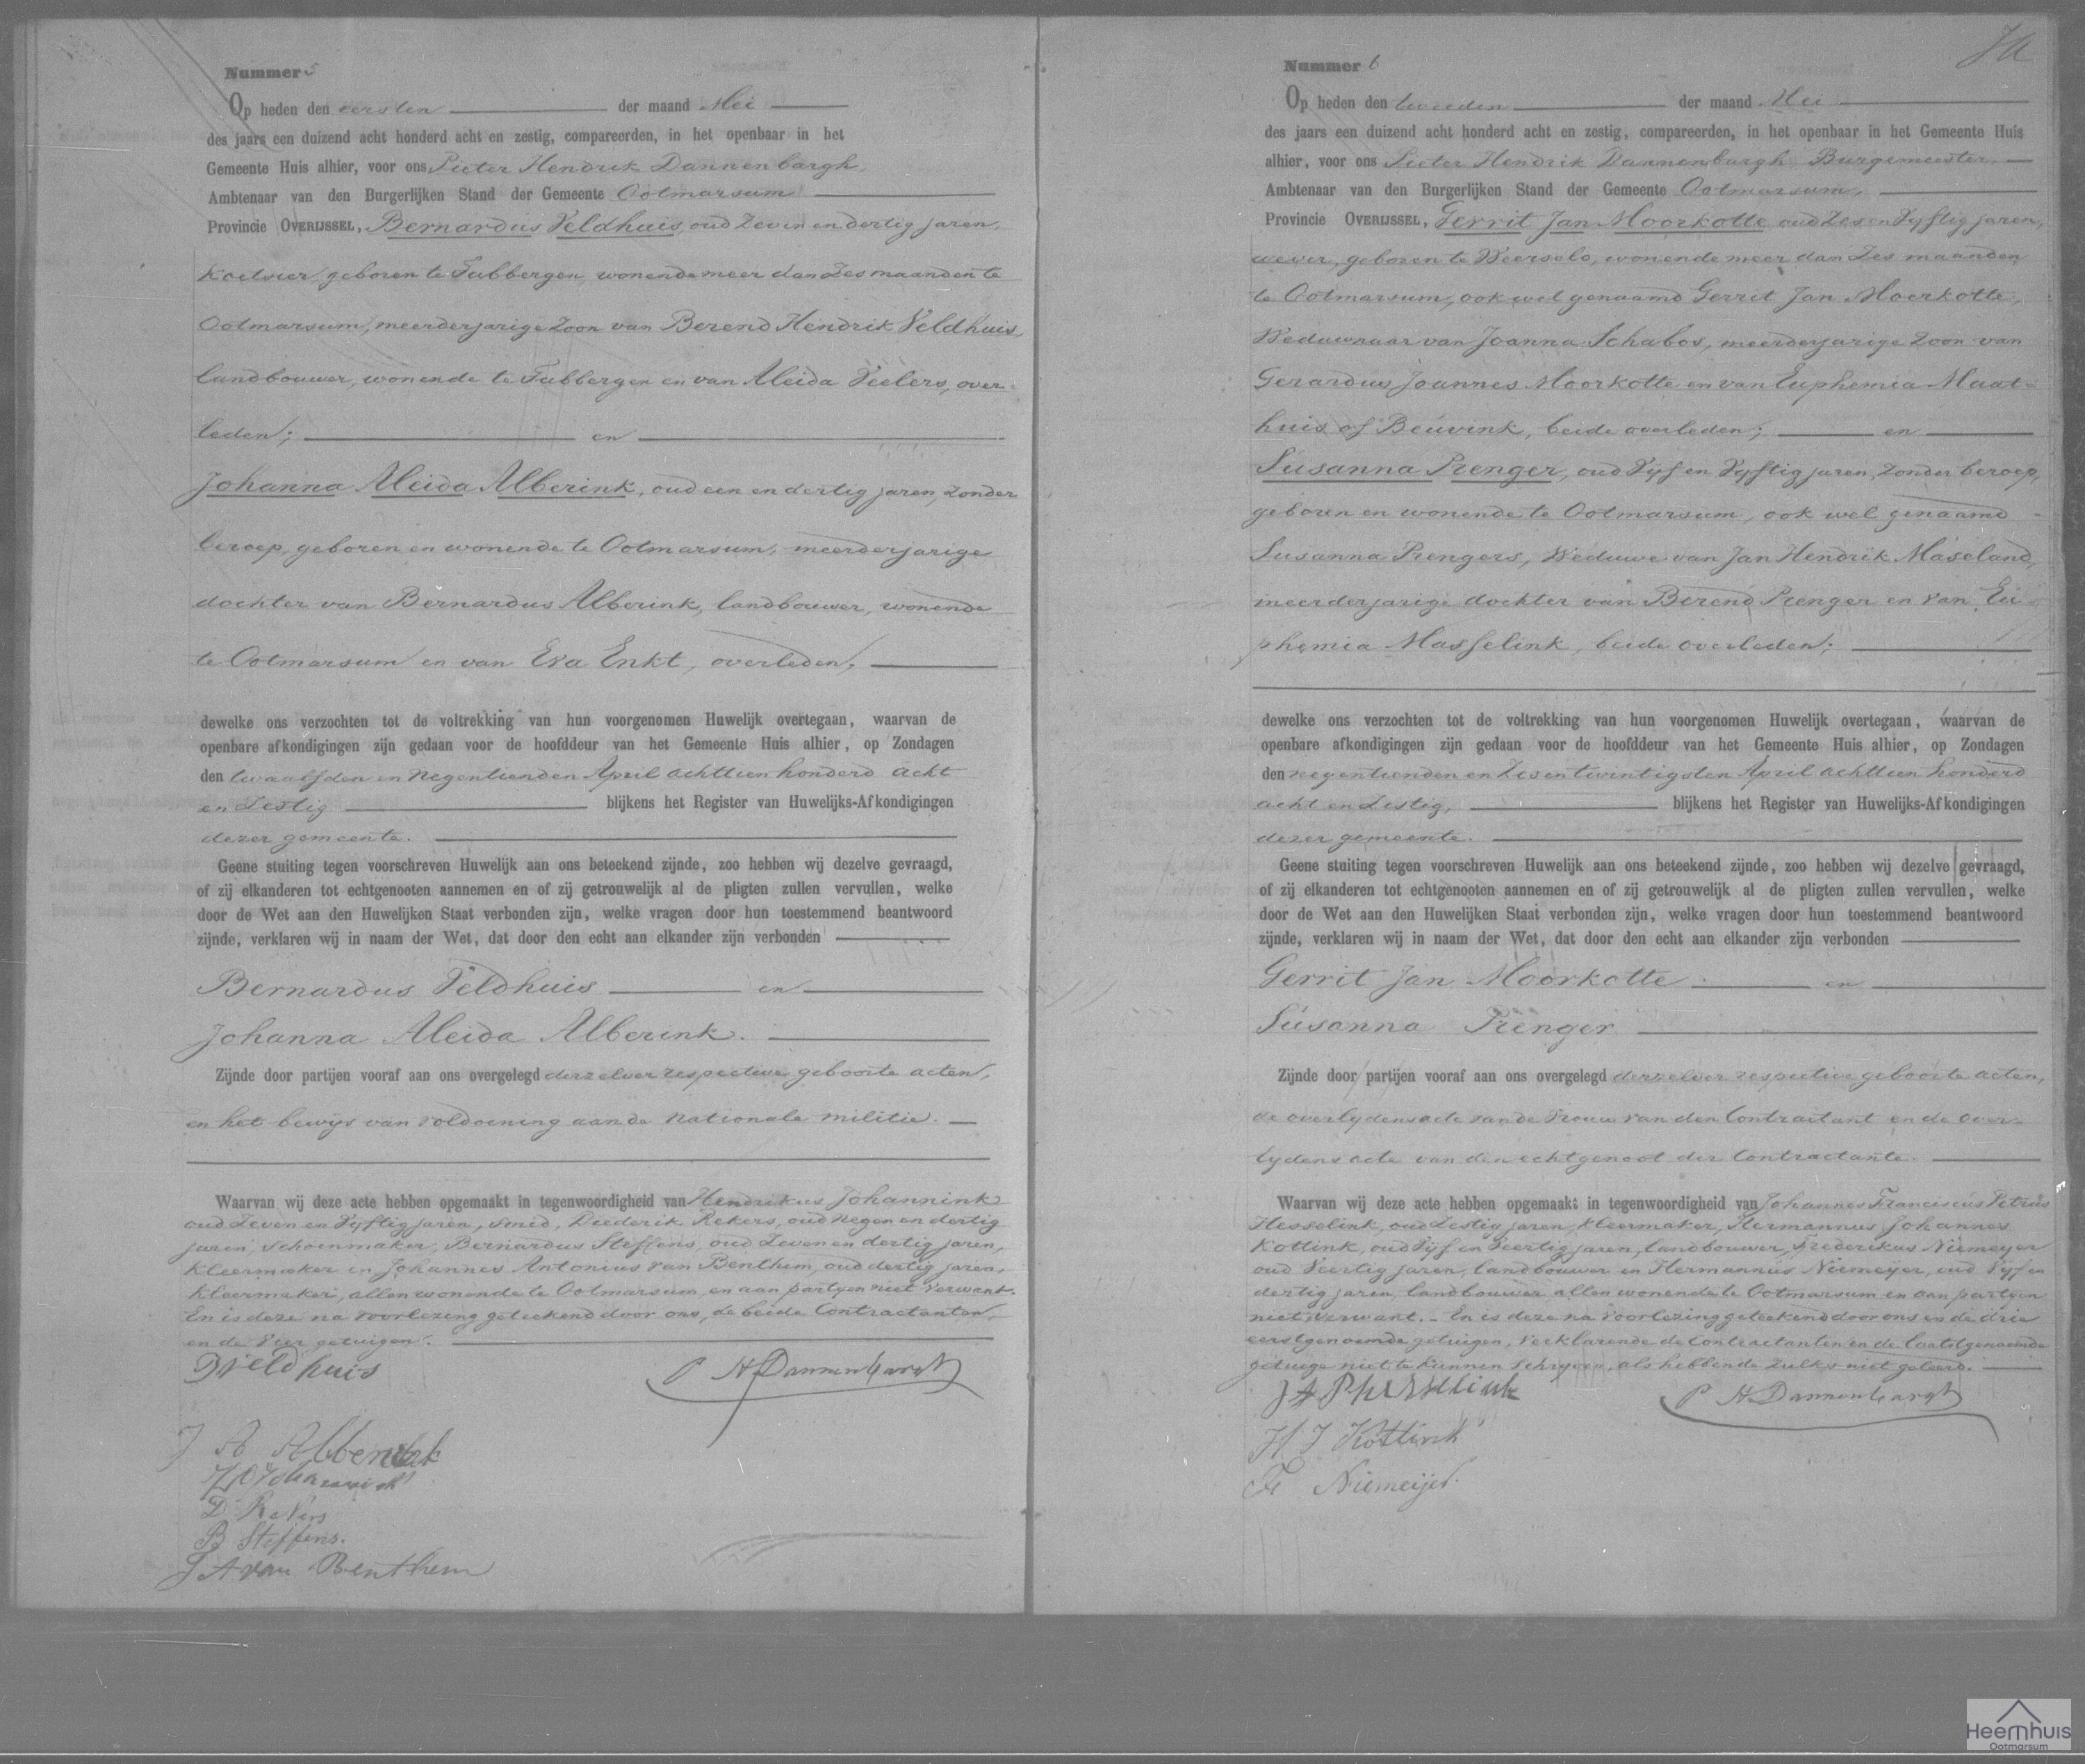 Nummer 5
Op heden den eersten der maand Mei
des jaars een duizend acht honderd acht en zestig, compareerden, in het openbaar in het
Gemeente Huis alhier, voor ons Pieter Hendrik Dannenbargh,
Ambtenaar van den Burgerlijken Stand der Gemeente Ootmarsum
Provincie OVERIJSSEL, Bernardus Veldhuis, oud Zeven en dertig jaren,
Koetsier, geboren te Tubbergen, wonende meer dan Zes maanden te
Ootmarsum, meerderjarige Zoon van Berend Hendrik Veldhuis,
landbouwer, wonende te Tubbergen en van Aleida Veelers, over-
leden; en
Johanna Aleida Alberink, oud een en dertig jaren, zonder
beroep, geboren en wonende te Ootmarsum, meerderjarige
dochter van Bernardus Alberink, landbouwer, wonende
te Ootmarsum en van Eva Enkt, overleden,
dewelke ons verzochten tot de voltrekking van hun voorgenomen Huwelijk overtegaan, waarvan de
openbare afkondigingen zijn gedaan voor de hoofddeur van het Gemeente Huis alhier, op Zondagen
den twaalfden en Negentienden April achttien honderd acht
en Zestig blijkens het Register van Huwelijks-Afkondigingen
dezer gemeente.
Geene stuiting tegen voorschreven Huwelijk aan ons beteekend zijnde, zoo hebben wij dezelve gevraagd,
of zij elkanderen tot echtgenooten aannemen en of zij getrouwelijk al de pligten zullen vervullen, welke
door de Wet aan den Huwelijken Staat verbonden zijn, welke vragen door hun toestemmend beantwoord
zijnde, verklaren wij in naam der Wet, dat door den echt aan elkander zijn verbonden
Bernardus Veldhuis en
Johanna Aleida Alberink.
Zijnde door partijen vooraf aan ons overgelegd derzelver respective geboorte acten,
en het bewijs van voldoening aan de Nationale Militie.
Waarvan wij deze acte hebben opgemaakt in tegenwoordigheid van Hendrikus Johannink
oud Zeven en Vyftig jaren, smid, Diederik Rekers, oud Negen en dertig
jaren, Schoenmaker, Bernardus Steffens, oud Zeven en dertig jaren,
Kleermaker en Johannes Antonius van Benthem, oud dertig jaren,
Kleermaker, allen wonende te Ootmarsum, en aan partyen niet verwant.
En is deze na voorlezing geteekend door ons, de beide Contractanten,
en de Vier getuigen.
B Veldhuis
P H Dannenbargh
J A Alberink
H Johannink
D Rekers
B Steffens.
J A van Benthem
Nummer 6
Op heden den tweeden der maand Mei
des jaars een duizend acht honderd acht en zestig, compareerden, in het openbaar in het Gemeente Huis
alhier, voor ons Pieter Hendrik Dannenbargh, Burgemeester,
Ambtenaar van den Burgerlijken Stand der Gemeente Ootmarsum,
Provincie OVERIJSSEL, Gerrit Jan Moorkotte, oud Zes en Vyftig jaren,
wever, geboren te Weerselo, wonende meer dan Zes maanden
te Ootmarsum, ook wel genaamd Gerrit Jan Moerkotte,
Weduwnaar van Joanna Schabos, meerderjarige Zoon van
Gerardus Joannes Moorkotte en van Euphemia Maat-
huis of Beuvink, beide overleden; en
Susanna Prenger, oud Vyf en Vyftig jaren, Zonder beroep,
geboren en wonende te Ootmarsum, ook wel genaamd
Susanna Prengers, Weduwe van Jan Hendrik Maseland,
meerderjarige dochter van Berend Prenger en van Eu-
phemia Masselink, beide overleden;
dewelke ons verzochten tot de voltrekking van hun voorgenomen Huwelijk overtegaan, waarvan de
openbare afkondigingen zijn gedaan voor de hoofddeur van het Gemeente Huis alhier, op Zondagen
den negentienden en Zes en twintigsten April achttien honderd
acht en Zestig, blijkens het Register van Huwelijks-Afkondigingen
dezer gemeente.
Geene stuiting tegen voorschreven Huwelijk aan ons beteekend zijnde, zoo hebben wij dezelve gevraagd,
of zij elkanderen tot echtgenooten aannemen en of zij getrouwelijk al de pligten zullen vervullen, welke
door de Wet aan den Huwelijken Staat verbonden zijn, welke vragen door hun toestemmend beantwoord
zijnde, verklaren wij in naam der Wet, dat door den echt aan elkander zijn verbonden
Gerrit Jan Moorkotte en
Susanna Prenger
Zijnde door partijen vooraf aan ons overgelegd derzelver respective geboorte acten,
de overlydens acte van de Vrouw van den Contractant en de over-
lydens acte van den echtgenoot der Contractante.
Waarvan wij deze acte hebben opgemaakt in tegenwoordigheid van Johannes Franciscus Petrus
Hesselink, oud Zestig jaren, Kleermaker, Hermannus Johannes
Kottink, oud Vyf en Veertig jaren, landbouwer, Frederikus Niemeyer
oud Veertig jaren, landbouwer en Hermannus Niemeijer, oud Vyf en
dertig jaren, landbouwer allen wonende te Ootmarsum en aan partyen
niet verwant. En is deze na voorlezing geteekend door ons en de drie
eerstgenoemde getuigen, Verklarende de Contractanten en de laatstgenoemde
getuige niet te kunnen Schryven, als hebbende zulks niet geleerd.
J F P Hesselink
P H Dannenbargh
H J Kottink
Fr Niemeijer.
Heemhuis
Ootmarsum